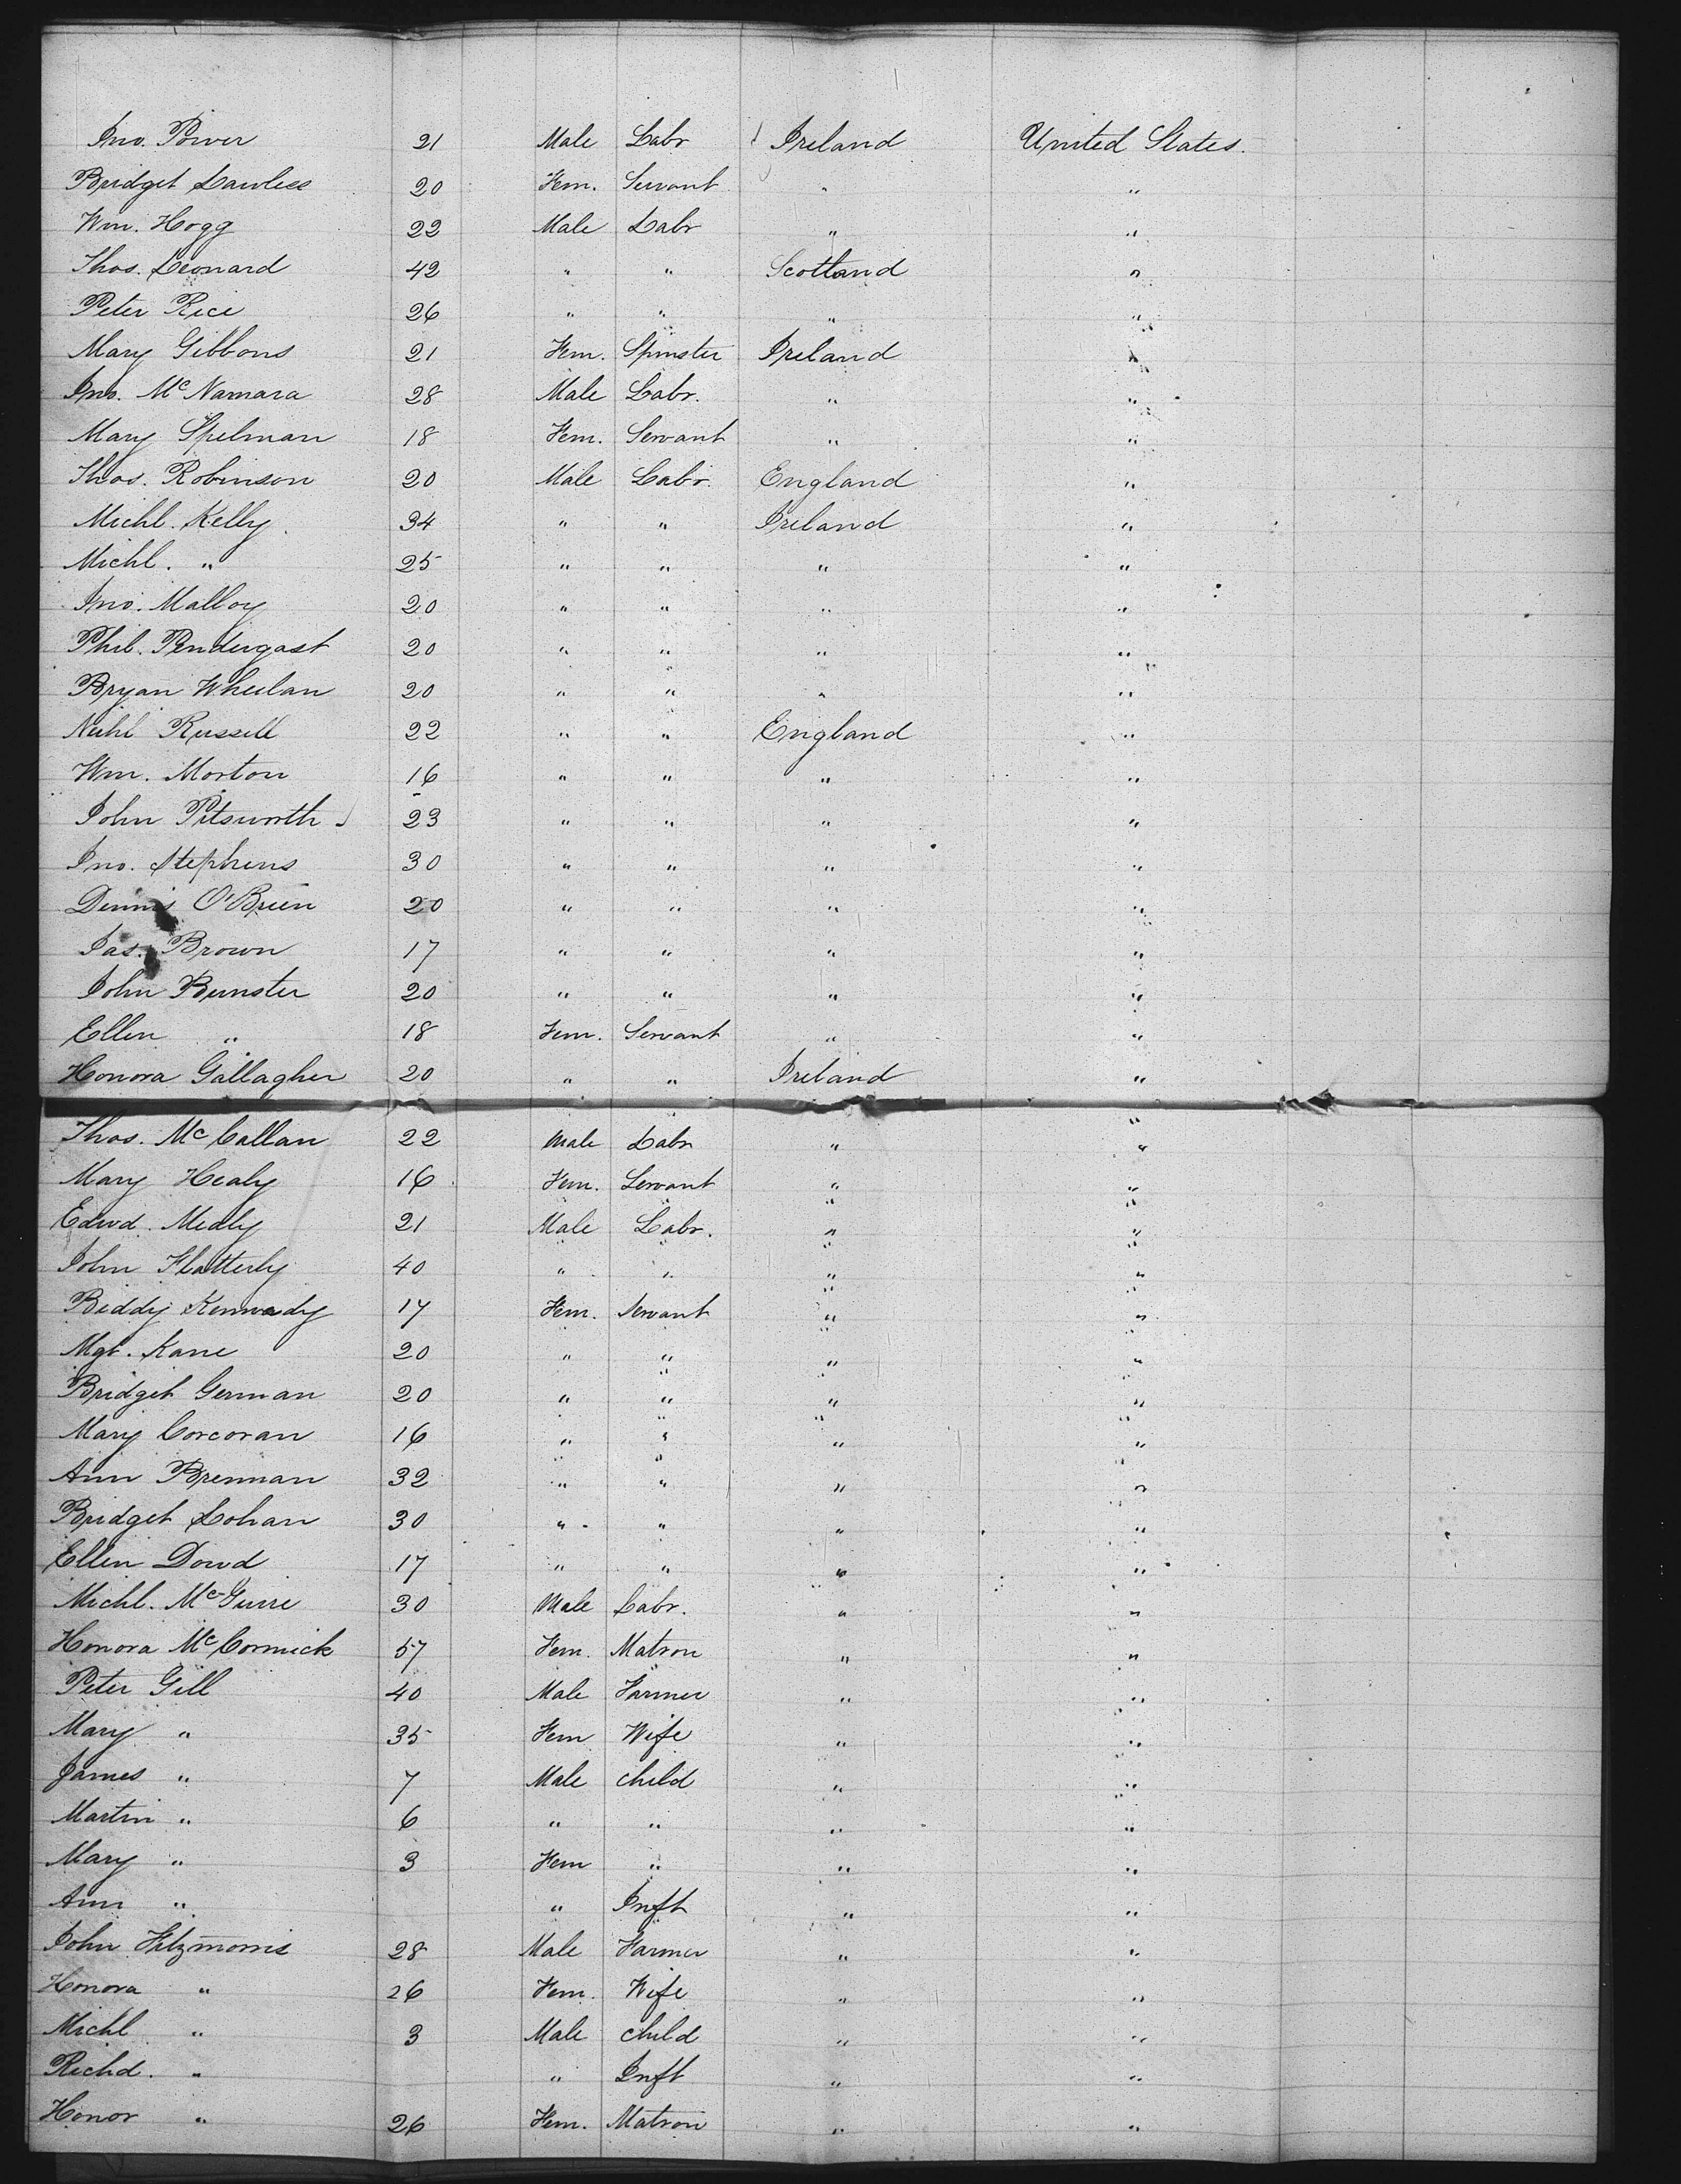 Jno. Power 21 Male Labr Ireland United States.
Bridget Lawless 20 Fem. Servant " "
Wm. Hogg 22 Male Labr " "
Thos. Leonard 42 " " Scotland "
Peter Rice 26 " " " "
Mary Gibbons 21 Fem. Spinster Ireland "
Jno. McNamara 28 Male Labr. " "
Mary Spelman 18 Fem. Servant " "
Thos. Robinson 20 Male Labr. England "
Michl. Kelly. 34 " " Ireland "
Michl. " 25 " " " "
Jno. Malloy 20 " " " "
Phil. Pendergast 20 " " " "
Bryan Wheelan 20 " " " "
Russell 22 " " England "
Wm. Morton 16 " " " "
John Pitsworth 23 " " " "
Jno. Stephens 30 " " " "
Dennis O'Brien 20 " " " "
Jas. Brown 17 " " " "
John Bunster 20 " " " "
Ellen " 18 Fem. Servant " "
Honora Gallagher 20 " " Ireland "
Thos. McCallan 22 Male Labr " "
Mary Healy 16 Fem. Servant " "
Edwd. Medly 21 Male Labr. " "
John Flatterly 40 " " " "
Biddy Kennady 17 Fem. Servant " "
Mgt. Kane 20 " " " "
Bridget German 20 " " " "
Mary Corcoran 16 " " " "
Ann Brennan 32 " " " "
Bridget Lohan 30 " " " "
Ellen Dowd 17 " " " "
Michl. McGuire 30 Male Labr. " "
Honora McCormick 57 Fem. Matron " "
Peter Gill 40 Male Farmer " "
Mary " 35 Fem Wife " "
James " 7 Male child " "
Martin " 6 " " " "
Mary " 3 Fem " " "
Ann " " Inft " "
John Fitzmorris 28 Male Farmer " "
Honora " 26 Fem. Wife " "
Michl " 3 Male child " "
Richd. " " Inft " "
Honor " 26 Fem. Matron " "